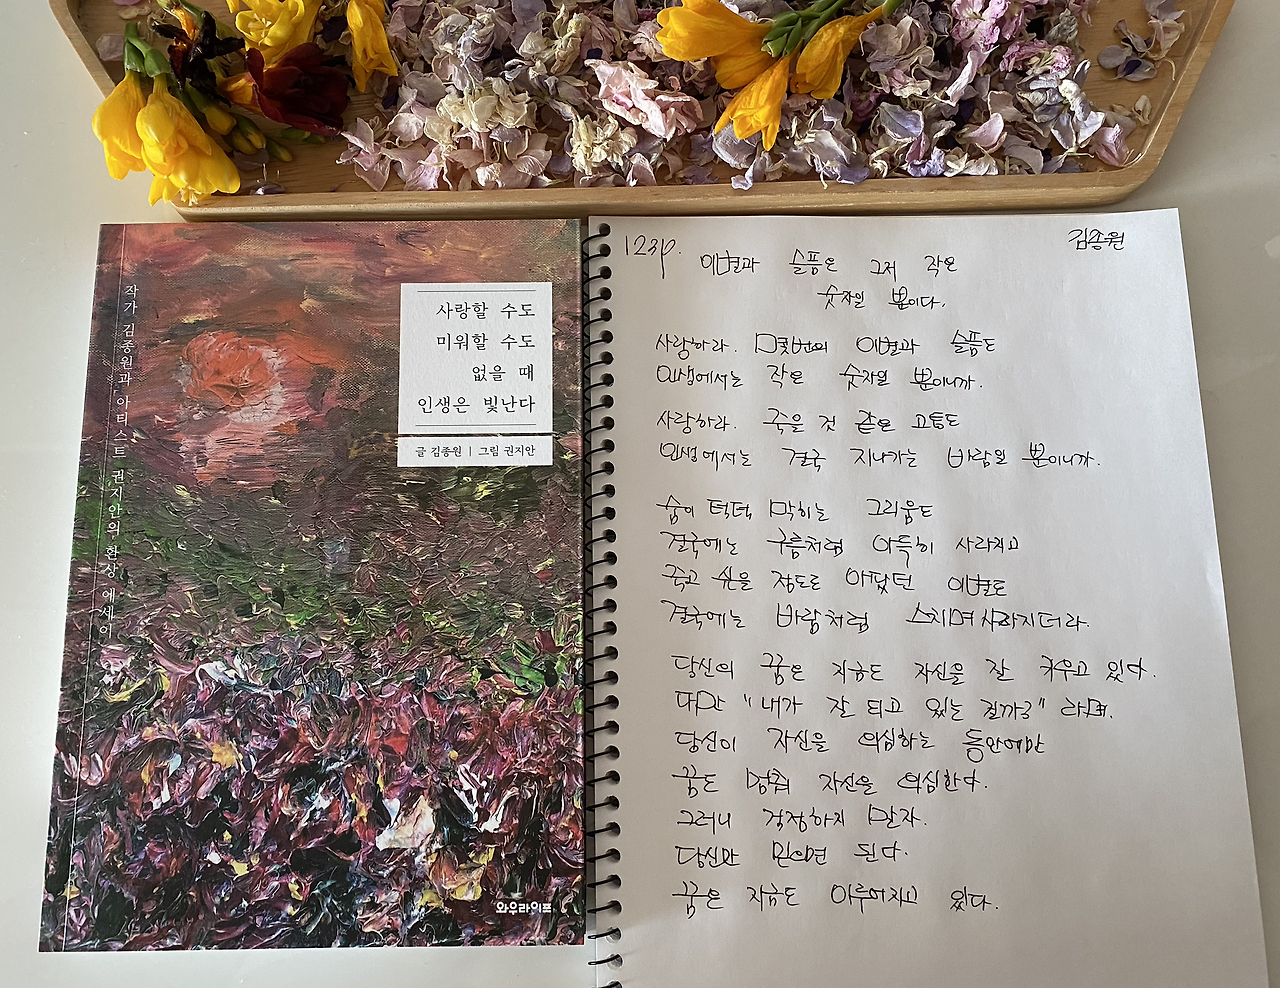 작가 김종원과 아티스트 권지안의 환상 에세이
사랑할 수도
미워할 수도
없을 때
인생은 빛난다
글 김종원 | 그림 권지안
와우라이프
123p.
김종원
이별과 슬픔은 그저 작은
숫자일 뿐이다.
사랑하라. 몇번의 이별과 슬픔도
인생에서는 작은 숫자일 뿐이니까.
사랑하라. 죽을 것 같은 고통도
인생에서는 결국 지나가는 바람일 뿐이니까.
숨이 턱턱 막히는 그리움도
결국에는 구름처럼 아득히 사라지고
죽고 싶을 정도로 아팠던 이별도
결국에는 바람처럼 스치며 사라지더라.
당신의 꿈은 지금도 자신을 잘 키우고 있다.
다만 "내가 잘 되고 있는 걸까?" 라며,
당신이 자신을 의심하는 동안에만
꿈도 멈춰 자신을 의심한다.
그러니 걱정하지 말자.
당신만 믿으면 된다.
꿈은 지금도 이루어지고 있다.